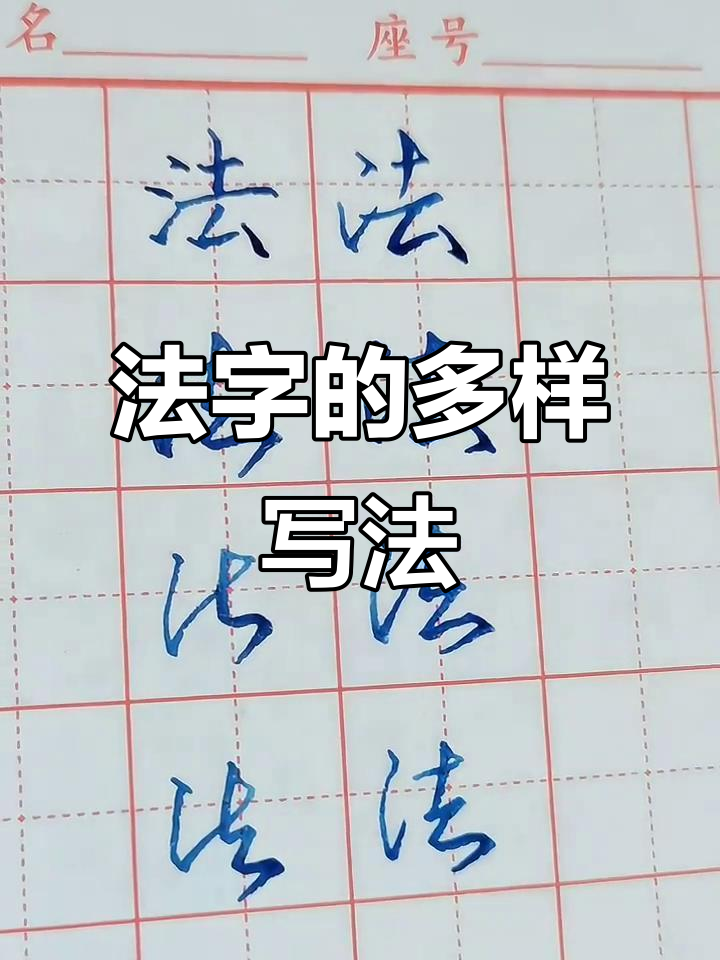 名 座号
法 法
法字的多样
写法
法 法
法 法